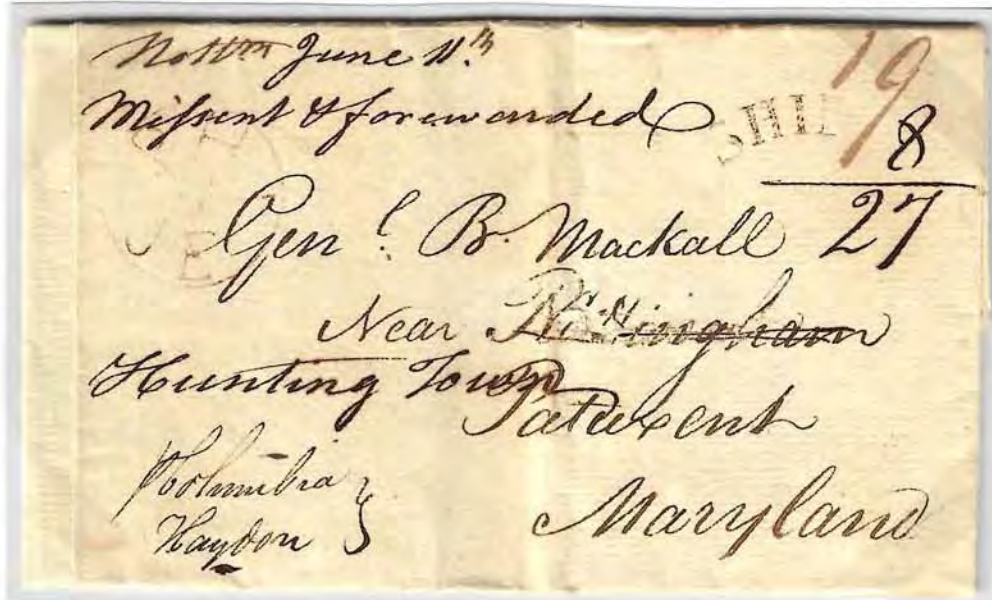 Nottm June 11th
Missent & forewarded
SHIP
19
8
27
Genl. B. Mackall
Near Nottingham
Hunting Town
Patuxent
Maryland
Columbia
Haydon